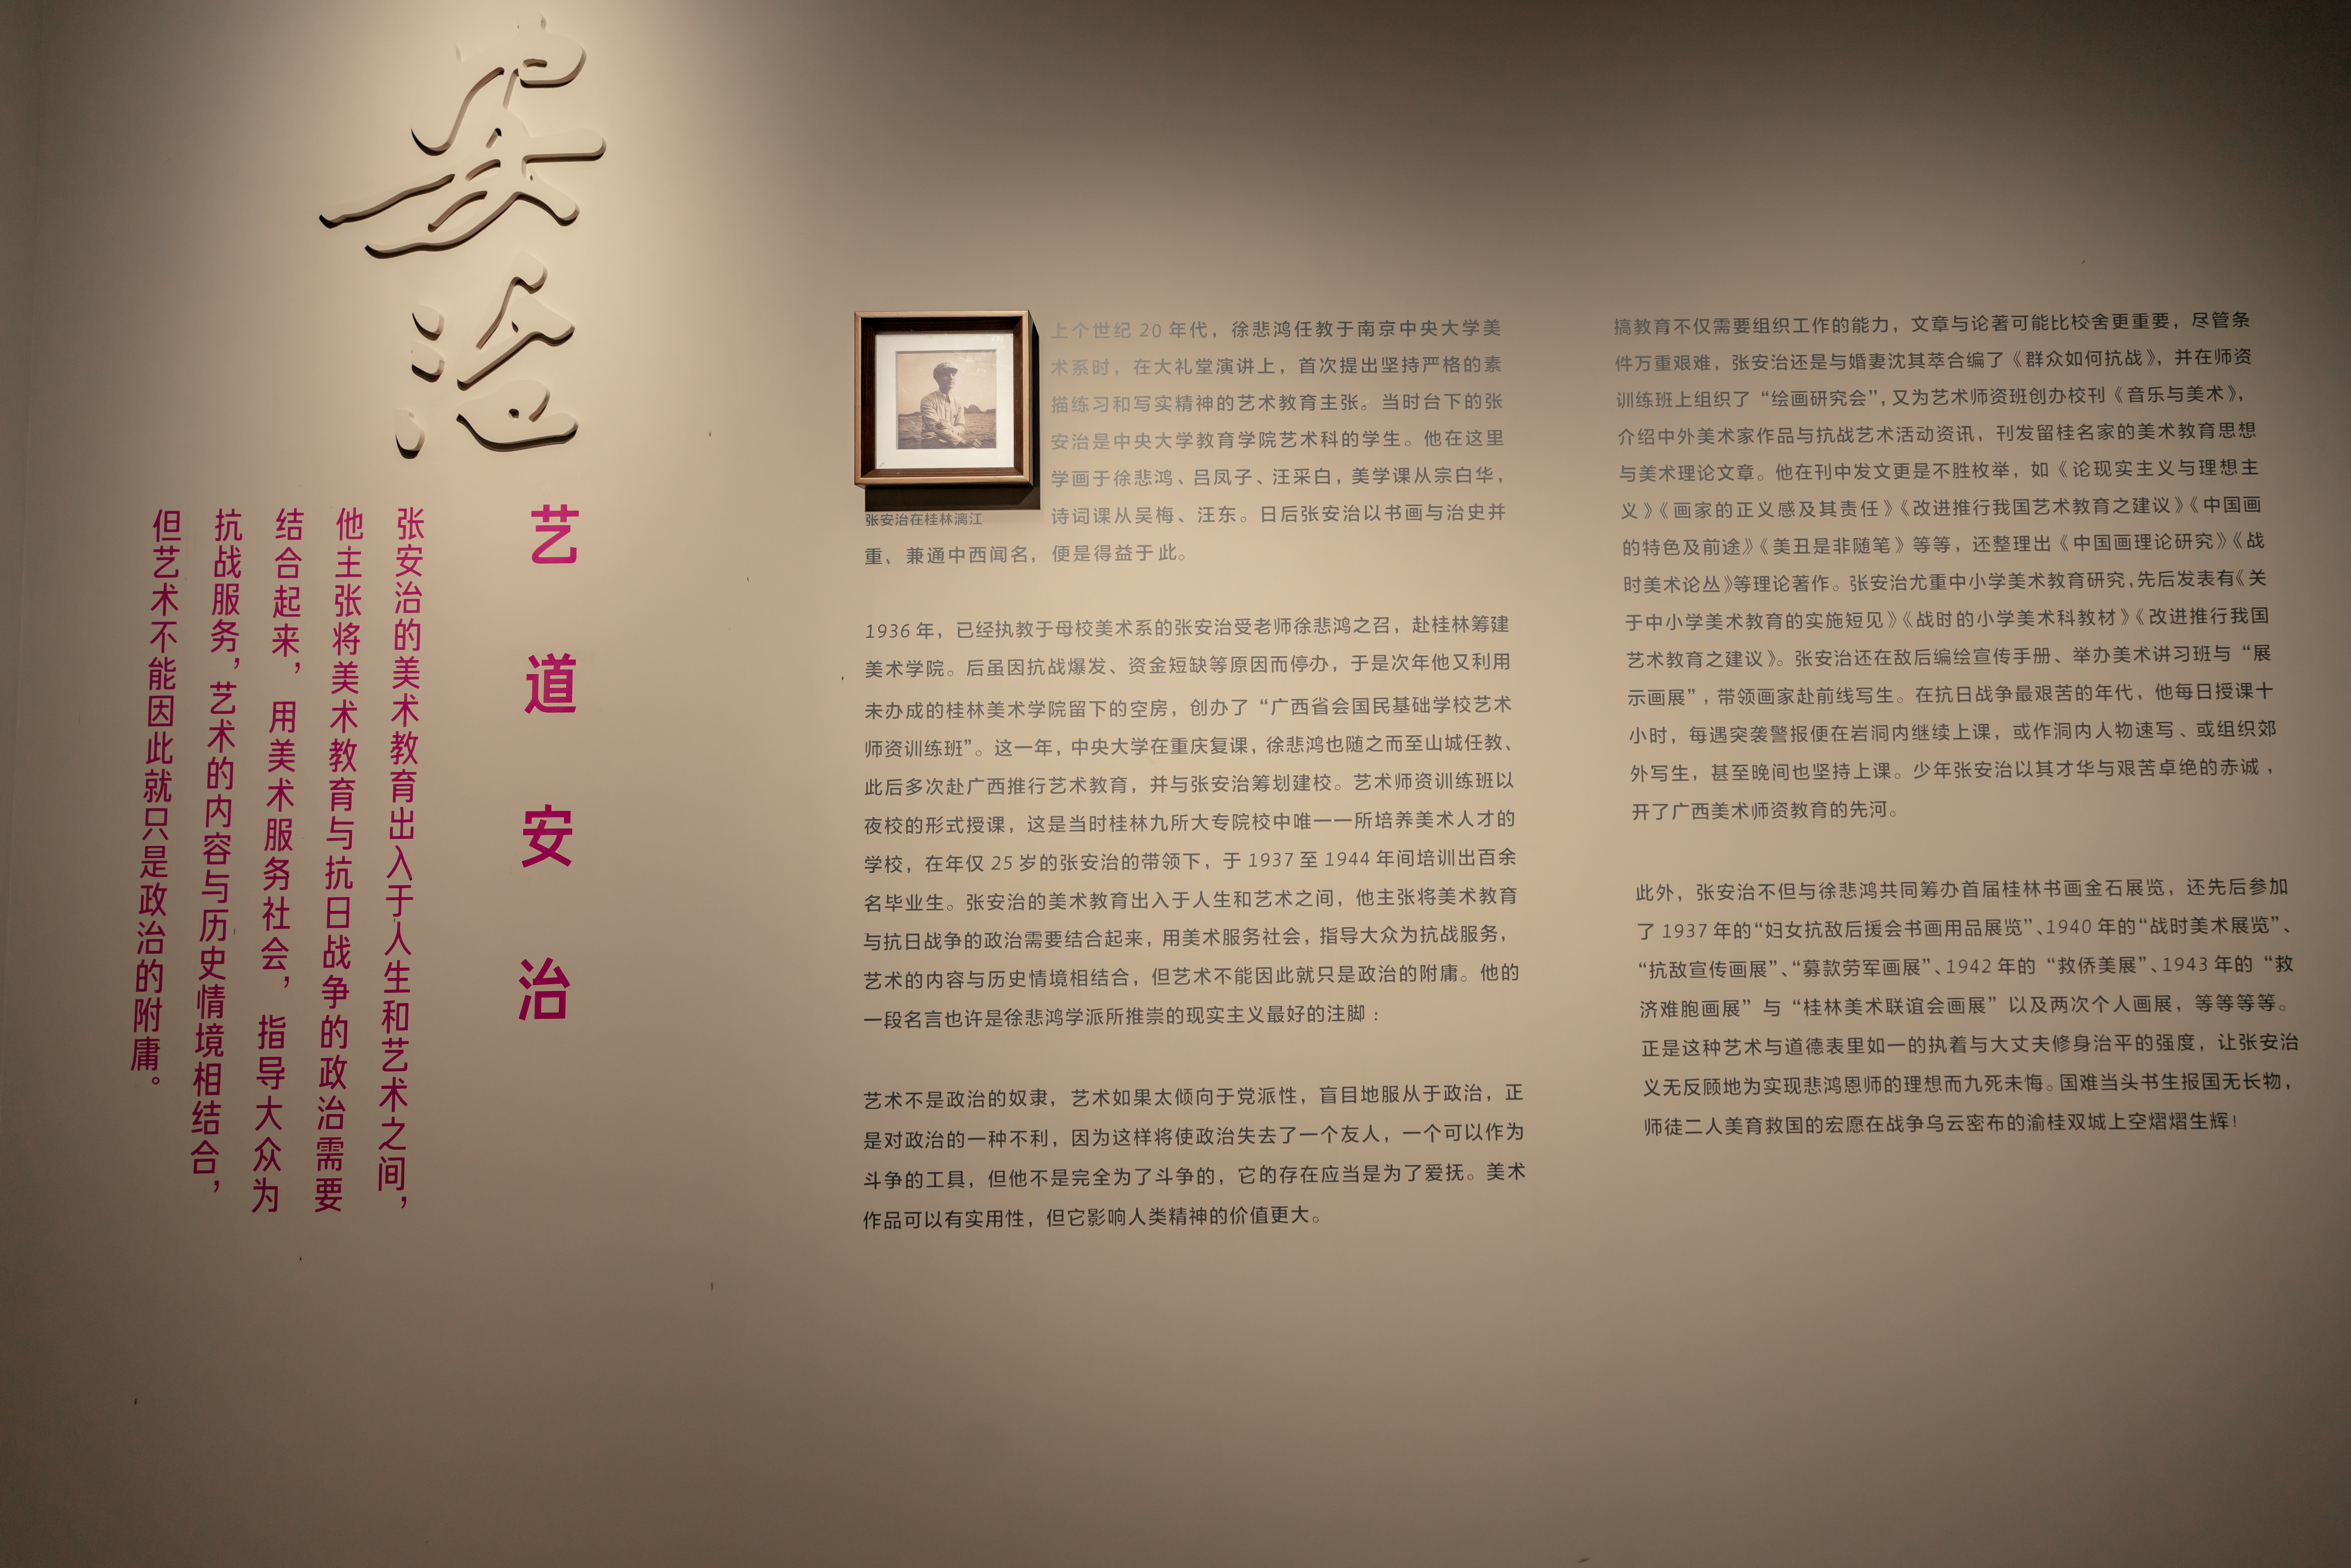 安治
艺道安治
张安治的美术教育出入于人生和艺术之间，
他主张将美术教育与抗日战争的政治需要
结合起来，用美术服务社会，指导大众为
抗战服务，艺术的内容与历史情境相结合，
但艺术不能因此就只是政治的附庸。
张安治在桂林漓江
上个世纪 20 年代，徐悲鸿任教于南京中央大学美
术系时，在大礼堂演讲上，首次提出坚持严格的素
描练习和写实精神的艺术教育主张。当时台下的张
安治是中央大学教育学院艺术科的学生。他在这里
学画于徐悲鸿、吕凤子、汪采白，美学课从宗白华，
诗词课从吴梅、汪东。日后张安治以书画与治史并
重、兼通中西闻名，便是得益于此。
1936 年，已经执教于母校美术系的张安治受老师徐悲鸿之召，赴桂林筹建
美术学院。后虽因抗战爆发、资金短缺等原因而停办，于是次年他又利用
未办成的桂林美术学院留下的空房，创办了“广西省会国民基础学校艺术
师资训练班”。这一年，中央大学在重庆复课，徐悲鸿也随之而至山城任教、
此后多次赴广西推行艺术教育，并与张安治筹划建校。艺术师资训练班以
夜校的形式授课，这是当时桂林九所大专院校中唯一一所培养美术人才的
学校，在年仅 25 岁的张安治的带领下，于 1937 至 1944 年间培训出百余
名毕业生。张安治的美术教育出入于人生和艺术之间，他主张将美术教育
与抗日战争的政治需要结合起来，用美术服务社会，指导大众为抗战服务，
艺术的内容与历史情境相结合，但艺术不能因此就只是政治的附庸。他的
一段名言也许是徐悲鸿学派所推崇的现实主义最好的注脚：
艺术不是政治的奴隶，艺术如果太倾向于党派性，盲目地服从于政治，正
是对政治的一种不利，因为这样将使政治失去了一个友人，一个可以作为
斗争的工具，但他不是完全为了斗争的，它的存在应当是为了爱抚。美术
作品可以有实用性，但它影响人类精神的价值更大。
搞教育不仅需要组织工作的能力，文章与论著可能比校舍更重要，尽管条
件万重艰难，张安治还是与婚妻沈其萃合编了《群众如何抗战》，并在师资
训练班上组织了“绘画研究会”，又为艺术师资班创办校刊《音乐与美术》，
介绍中外美术家作品与抗战艺术活动资讯，刊发留桂名家的美术教育思想
与美术理论文章。他在刊中发文更是不胜枚举，如《论现实主义与理想主
义》《画家的正义感及其责任》《改进推行我国艺术教育之建议》《中国画
的特色及前途》《美丑是非随笔》等等，还整理出《中国画理论研究》《战
时美术论丛》等理论著作。张安治尤重中小学美术教育研究，先后发表有《关
于中小学美术教育的实施短见》《战时的小学美术科教材》《改进推行我国
艺术教育之建议》。张安治还在敌后编绘宣传手册、举办美术讲习班与“展
示画展”，带领画家赴前线写生。在抗日战争最艰苦的年代，他每日授课十
小时，每遇突袭警报便在岩洞内继续上课，或作洞内人物速写、或组织郊
外写生，甚至晚间也坚持上课。少年张安治以其才华与艰苦卓绝的赤诚，
开了广西美术师资教育的先河。
此外，张安治不但与徐悲鸿共同筹办首届桂林书画金石展览，还先后参加
了 1937 年的“妇女抗敌后援会书画用品展览”、1940 年的“战时美术展览”、
“抗敌宣传画展”、“募款劳军画展”、1942 年的“救侨美展”、1943 年的“救
济难胞画展”与“桂林美术联谊会画展”以及两次个人画展，等等等等。
正是这种艺术与道德表里如一的执着与大丈夫修身治平的强度，让张安治
义无反顾地为实现悲鸿恩师的理想而九死未悔。国难当头书生报国无长物，
师徒二人美育救国的宏愿在战争乌云密布的渝桂双城上空熠熠生辉！